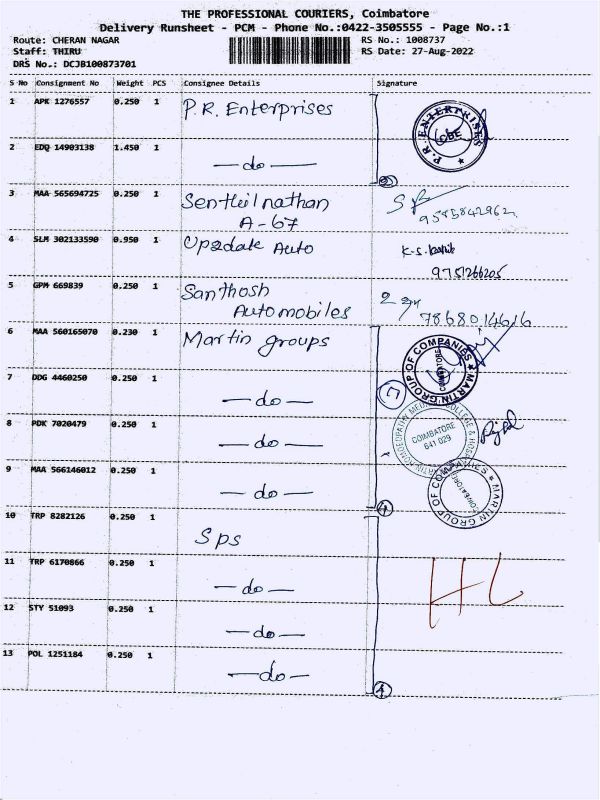 THE PROFESSIONAL COURIERS, Coimbatore
Delivery Runsheet - PCM - Phone No.:0422-3505555 - Page No.:1
Route: CHERAN NAGAR
RS No.: 1008737
Staff: THIRU
RS Date: 27-Aug-2022
DRS No.: DCJB100873701
S No Consignment No Weight PCS Consignee Details Signature
1 APK 1276557 0.250 1 P.R. Enterprises
P.R. ENTERPRISES
CBE
2 EDQ 14903138 1.450 1 —do—
3 MAA 565694725 0.250 1 Senthilnathan
A-67
9585842962
4 SLM 302133590 0.950 1 Up2date Auto K-S.
9751266205
5 GPM 669839 0.250 1 Santhosh
Automobiles
7868014616
6 MAA 560165070 0.230 1 Martin groups
MARTIN GROUP OF COMPANIES
COIMBATORE
7 DDG 4460250 0.250 1 —do—
8 PDK 7020479 0.250 1 —do—
COIMBATORE
641 029
9 MAA 566146012 0.250 1 —do—
MARTIN GROUP OF COMPANIES
COIMBATORE
4
10 TRP 8282126 0.250 1 Sps
11 TRP 6170866 0.250 1 —do—
HL
12 STY 51093 0.250 1 —do—
13 POL 1251184 0.250 1 —do—
4